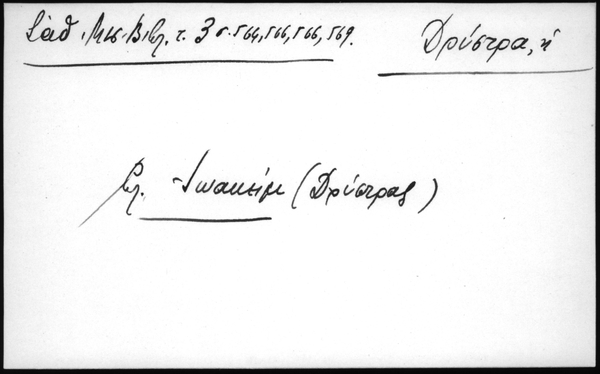 Σάθ. Μεσ. Βιβλ. τ. 3 σ. 564, 566, 566, 569.
Δρύστρα, ἡ
βλ. Ἰωακεὶμ (Δρύστρας)